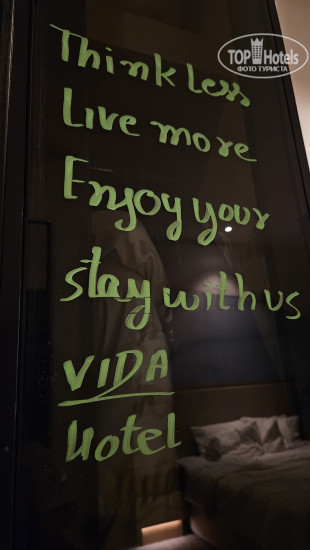 TOP Hotels
ФОТО ТУРИСТА
Think Less
Live more
Enjoy your
stay with us
VIDA
Hotel